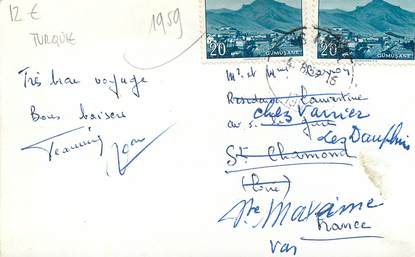 12€
TURQUIE
1959
20
GÜMÜŞANE
20
GÜMÜŞANE
Très beau voyage
Bons baisers
Jean
Mr et Mme
Residence Lamartine
chez Varnier
av. de la gare
Les Dauphins
St Chamond
(Loire)
Ste Maxime
France
Var